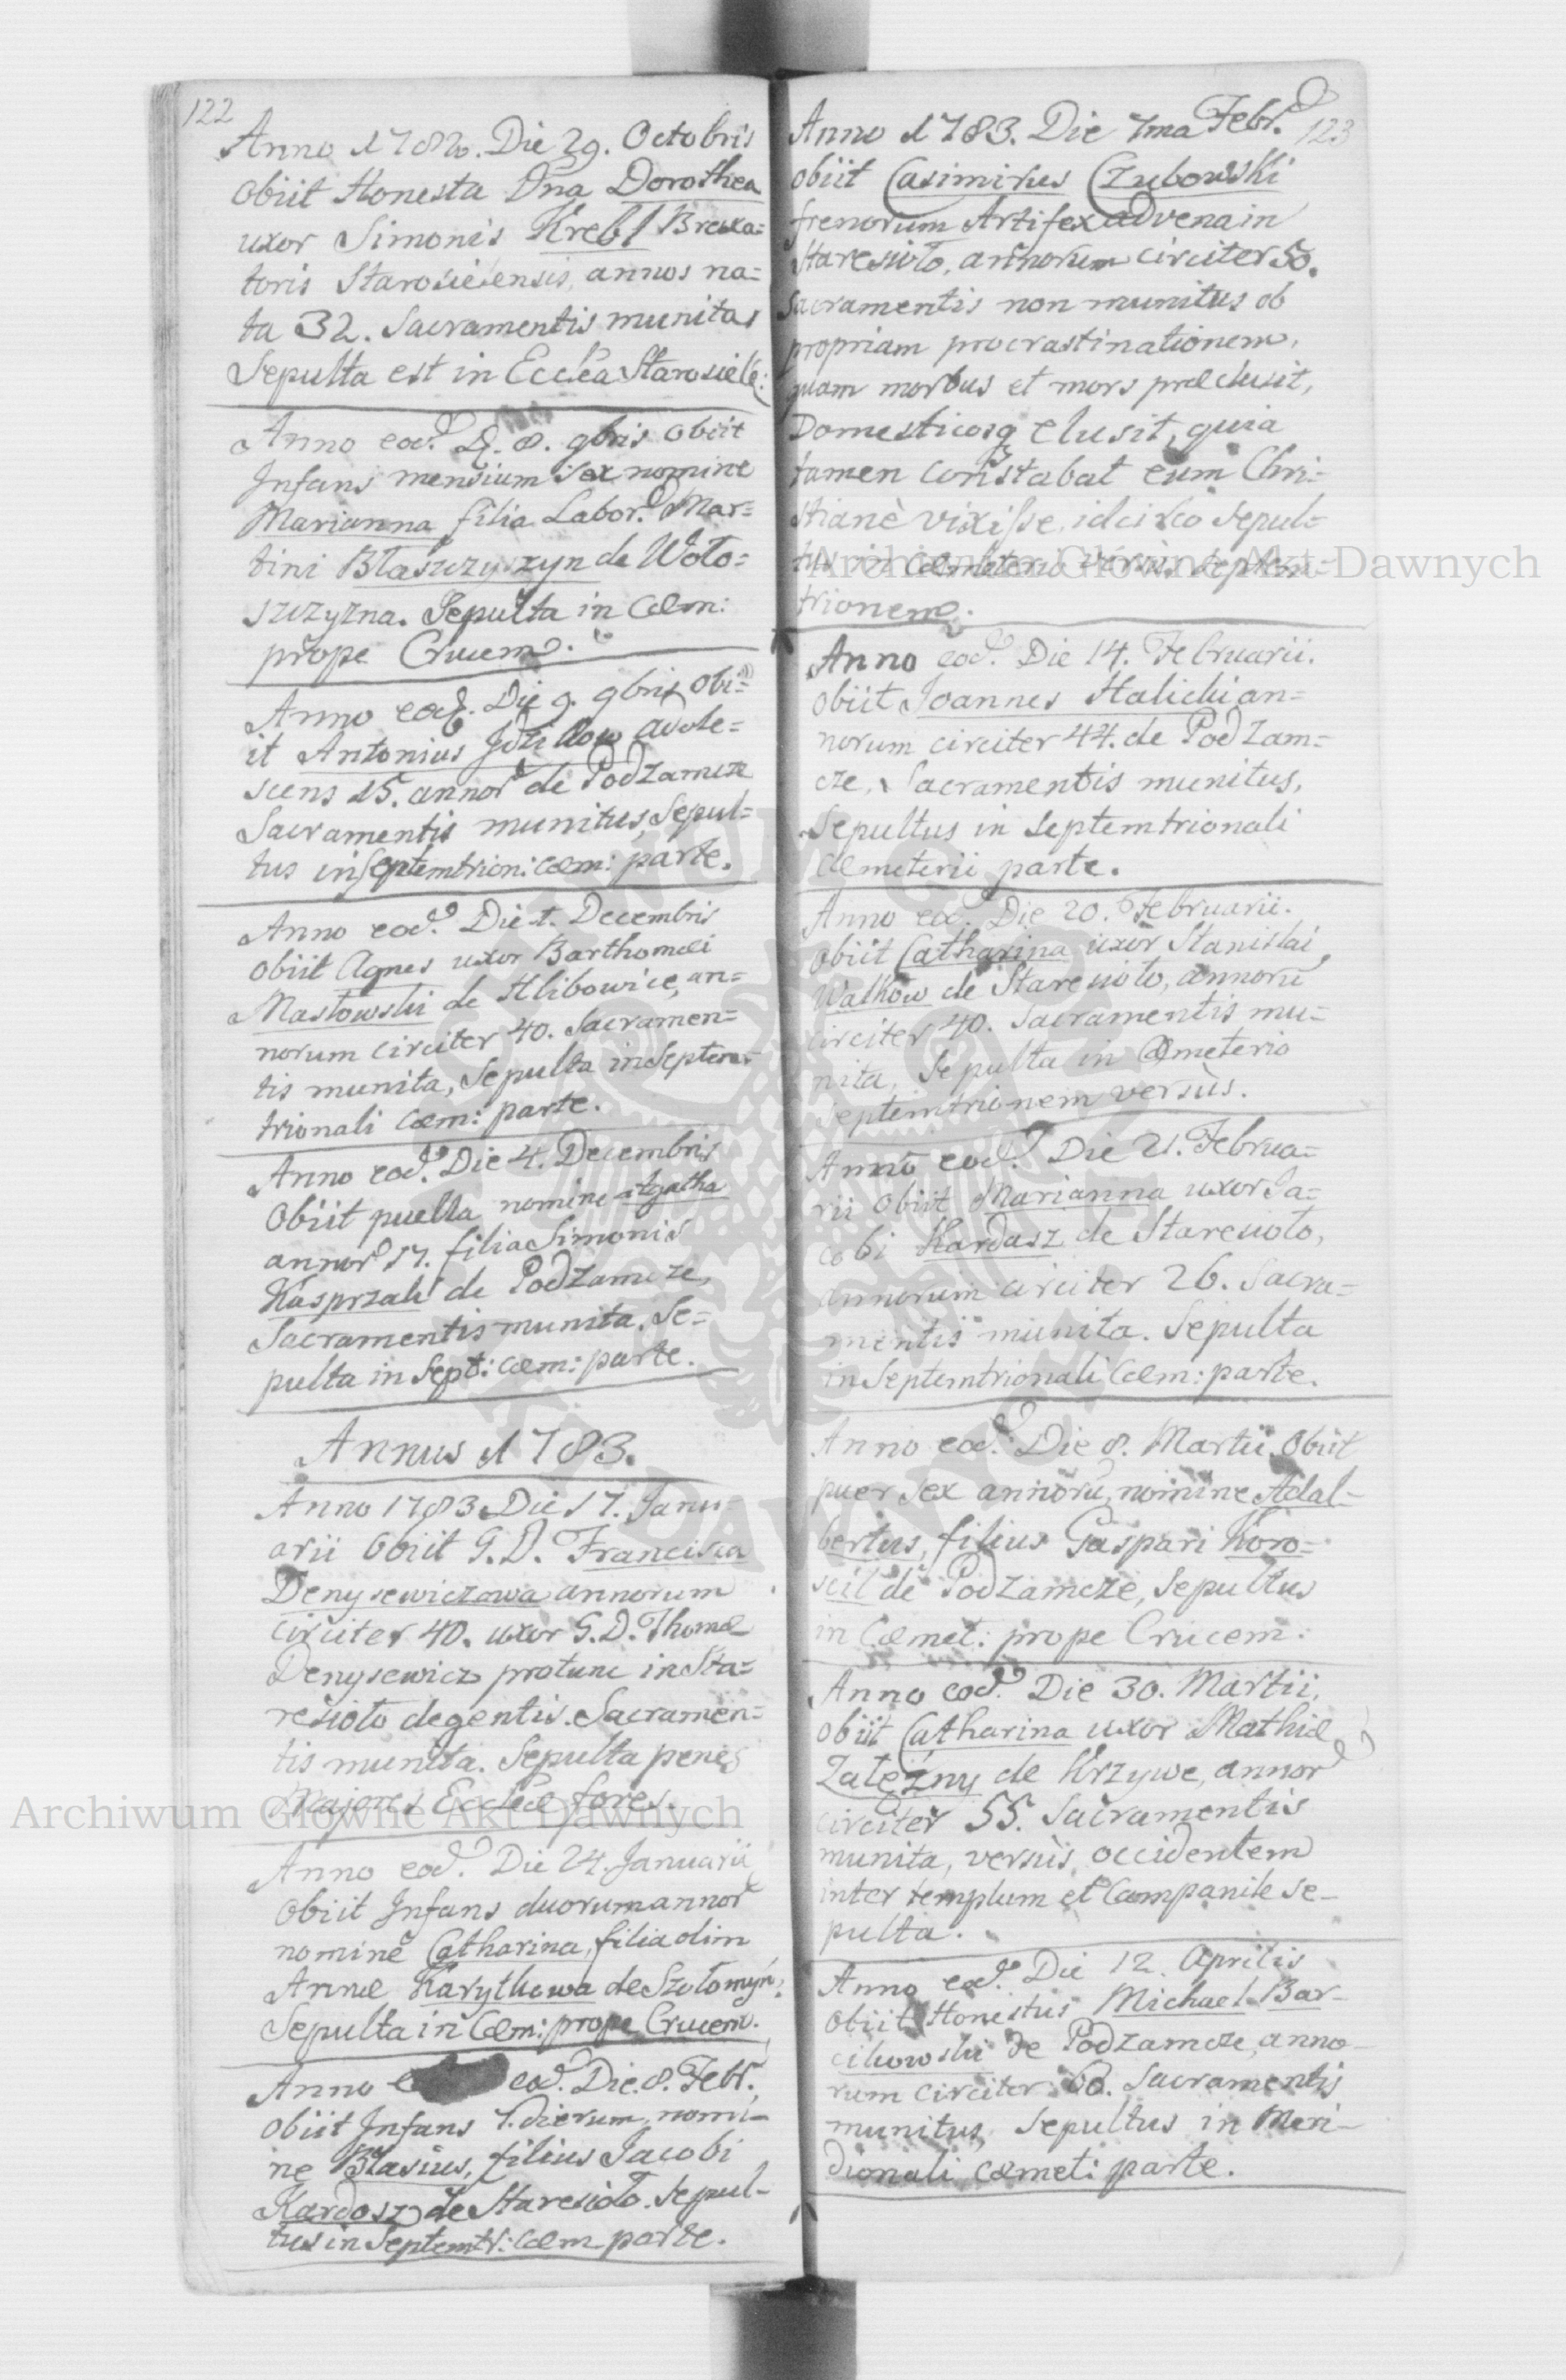 122
Anno 1782. Die 29. Octobris
obiit Honesta Dna Dorothea
uxor Simonis Krebl Brexa=
toris Starosielensis, annos na=
ta 32. Sacramentis munita,
Sepulta est in Eccl̃ea Starosiele:
Anno eod. D. 8. 9bris obiit
Infans mensium sex nomine
Marianna filia Labor. Mar=
tini Błaszczyszyn de Woło=
szczyzna. Sepulta in Cœm:
prope Crucem.
Anno eod. Die 9. 9bris obi=
it Antonius Jdzikow adole=
scens 15. annor de Podzamcze
Sacramentis munitus, Sepul=
tus in Septemtrion: cœm: parte.
Anno eod. Die 1. Decembris
obiit Agnes uxor Barthomæi
Masłowski de Hlibowice, an=
norum circiter 40. Sacramen=
tis munita, Sepulta in Septem=
trionali cœm: parte.
Anno eod. Die 4. Decembris
Obiit puella nomine Agatha
annor 17. filia Simonis
Kasprzak de Podzamcze,
Sacramentis munita, Se=
pulta in Sept: cœm: parte.
Annus 1783.
Anno 1783 Die 17. Janu=
arii Obiit G. D. Francisca
Denysewiczowa annorum
circiter 40. uxor G. D. Thomæ
Denysewicz protunc in Sta=
resioło degentis. Sacramen=
tis munita. Sepulta penes
Majores Eccl̃eæ fores.
Anno eod. Die 24. Januarii
Obiit Infans duorum annor
nomine Catharina, filia olim
Annæ Karytkowa de Szołomyn:
Sepulta in Cœm: prope Crucem.
Anno eod. Die. 8. Febr.
obiit Infans 7. dierum, nomi=
ne Blasius, filius Jacobi
Kardosz de Staresioło. Sepul=
tus in Septemtr: cœm parte.
123
Anno 1783. Die 7ma Febr.
obiit Casimirus Czubowski
frenorum Artifex advena in
Staresioło, annorum circiter 50.
Sacramentis non munitus ob
propriam procrastinationem,
quam morbus et mors præclusit,
Domesticosq elusit, quia
tamen constabat eum Chri=
stianè vixisse, idcirco Sepul=
tus in Cœmeterio versùs Septem=
trionem.
Anno eod. Die 14. Februarii.
obiit Joannes Halicki an=
norum circiter 44. de Podzam=
cze, Sacramentis munitus,
Sepultus in Septemtrionali
Cœmeterii parte.
Anno eod. Die 20. Februarii.
obiit Catharina uxor Stanislai
Walkow de Staresioło, annorũ
circiter 40. Sacramentis mu=
nita, Sepulta in Cœmeterio
Septemtrionem versùs.
Anno eod. Die 21. Februa=
rii obiit Marianna uxor Ja=
cobi Kardasz de Staresioło,
annorum circiter 26. Sacra=
mentis munita. Sepulta
in Septemtrionali Cœm: parte.
Anno eod. Die 8. Martii Obiit
puer sex annorũ, nomine Adal=
bertus, filius Gaspari Koro=
scil de Podzamcze, Sepultus
in Cœmet: prope Crucem.
Anno eod. Die 30. Martii,
obiit Catharina uxor Mathiæ
Zależny de Krzywe, annor
circiter 55. Sacramentis
munita, versùs occidentem
inter templum et Campanile Se=
pulta.
Anno eod. Die 12. Aprilis
obiit Honestus Michael Bar=
cikowski de Podzamcze, anno=
rum circiter 60. Sacramentis
munitus, Sepultus in Meri=
dionali cœmet: parte.
Archiwum Główne Akt Dawnych
Archiwum Główne Akt Dawnych